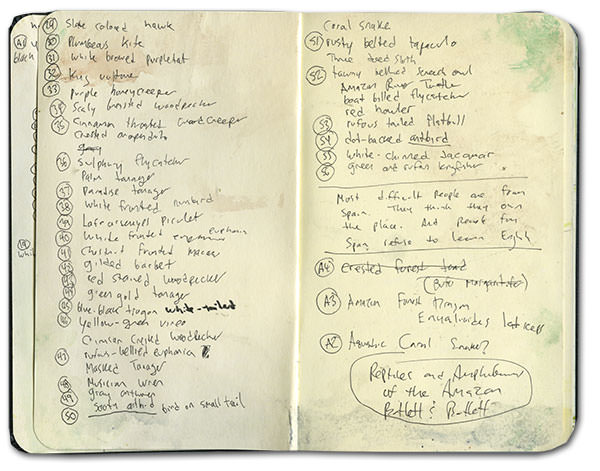 29 Slate colored hawk
30 Plumbeous Kite
31 white browed purpletuft
32 King vulture
33 purple honeycreeper
Scaly breasted woodpecker
35 Cinnamon throated woodcreeper
Crested oropendola
36 Sulphury flycatcher
Palm tanager
37 Paradise tanager
38 White fronted nunbird
39 Lafresnayes piculet
40 White fronted euphonia
41 Chestnut fronted Macaw
gilded barbet
red stained woodpecker
green gold tanager
45 blue-black trogon white-tailed
46 Yellow-green vireo
Crimson Crested Woodpecker
47 rufous-bellied euphonia
Masked Tanager
48 Musician Wren
49 gray antwren
50 Sooty antbird bird on small trail
Coral snake
51 rusty belted tapaculo
Three toed Sloth
52 tawny bellied screech owl
Amazon River Turtle
boat billed flycatcher
red howler
rufous tailed flatbill
53
54 dot-backed antbird
55 white-chinned Jacamar
56 green and rufous kingfisher
Most difficult people are from
Spain. They think they own
the place. And People from
Spain refuse to learn English
A4 Crested forest toad
(Bufo Margaritifer)
A3 Amazon Forest Dragon
Enyalioides laticeps
A2 Aquatic Coral Snake?
Reptiles and Amphibians
of the Amazon
Bartlett & Bartlett